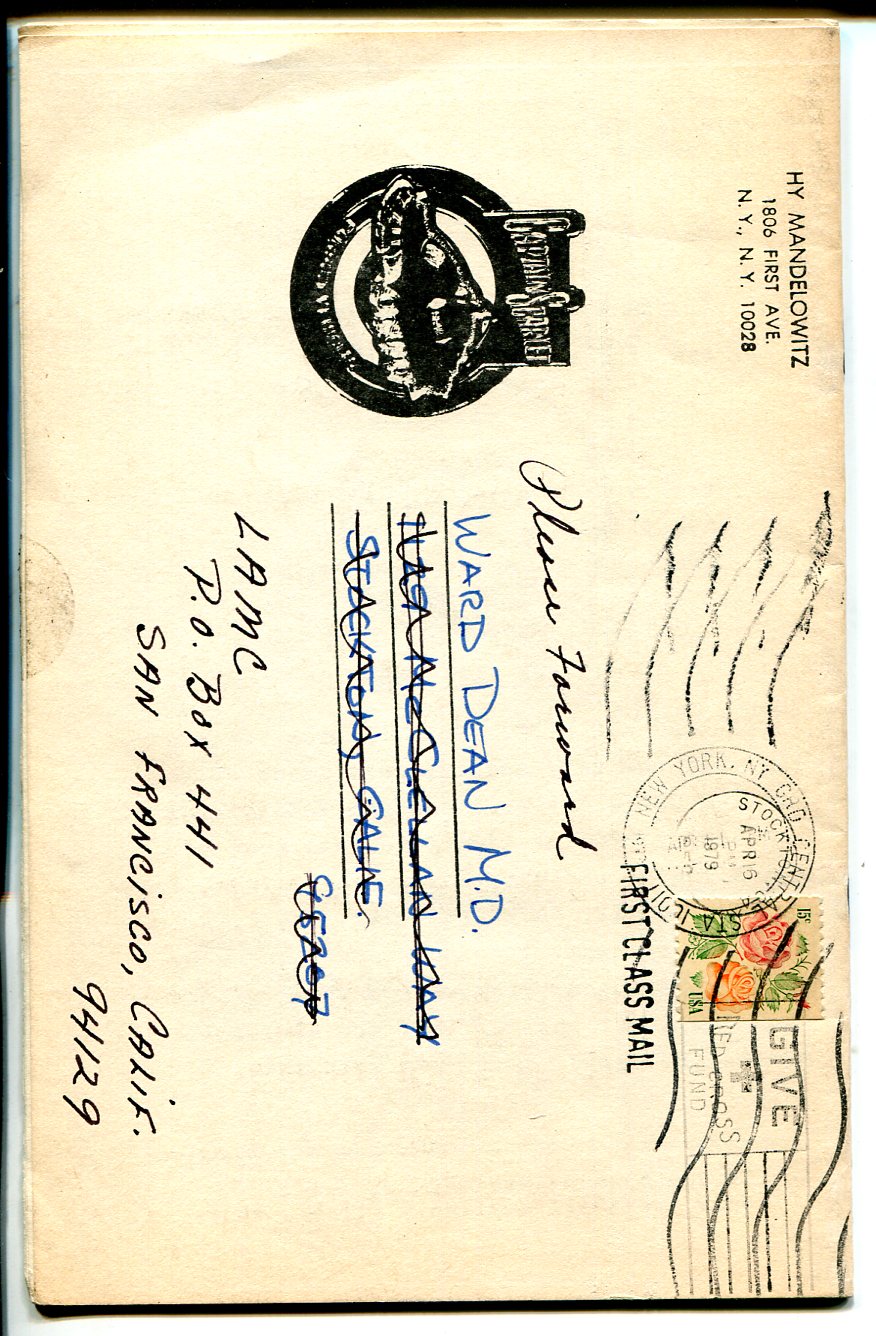 HY MANDELOWITZ
1806 FIRST AVE.
N.Y., N.Y. 10028
CAPTAIN SCARLET
NEW YORK, NY GRD CENT STA
STOCKTON, CA
APR 16
PM
1979
15c
USA
GIVE
RED CROSS
FUND
FIRST CLASS MAIL
Please Forward
WARD DEAN M.D.
McCLELLAN WAY
STOCKTON, CALIF.
95207
LAMC
P.O. BOX 441
SAN FRANCISCO, CALIF.
94129